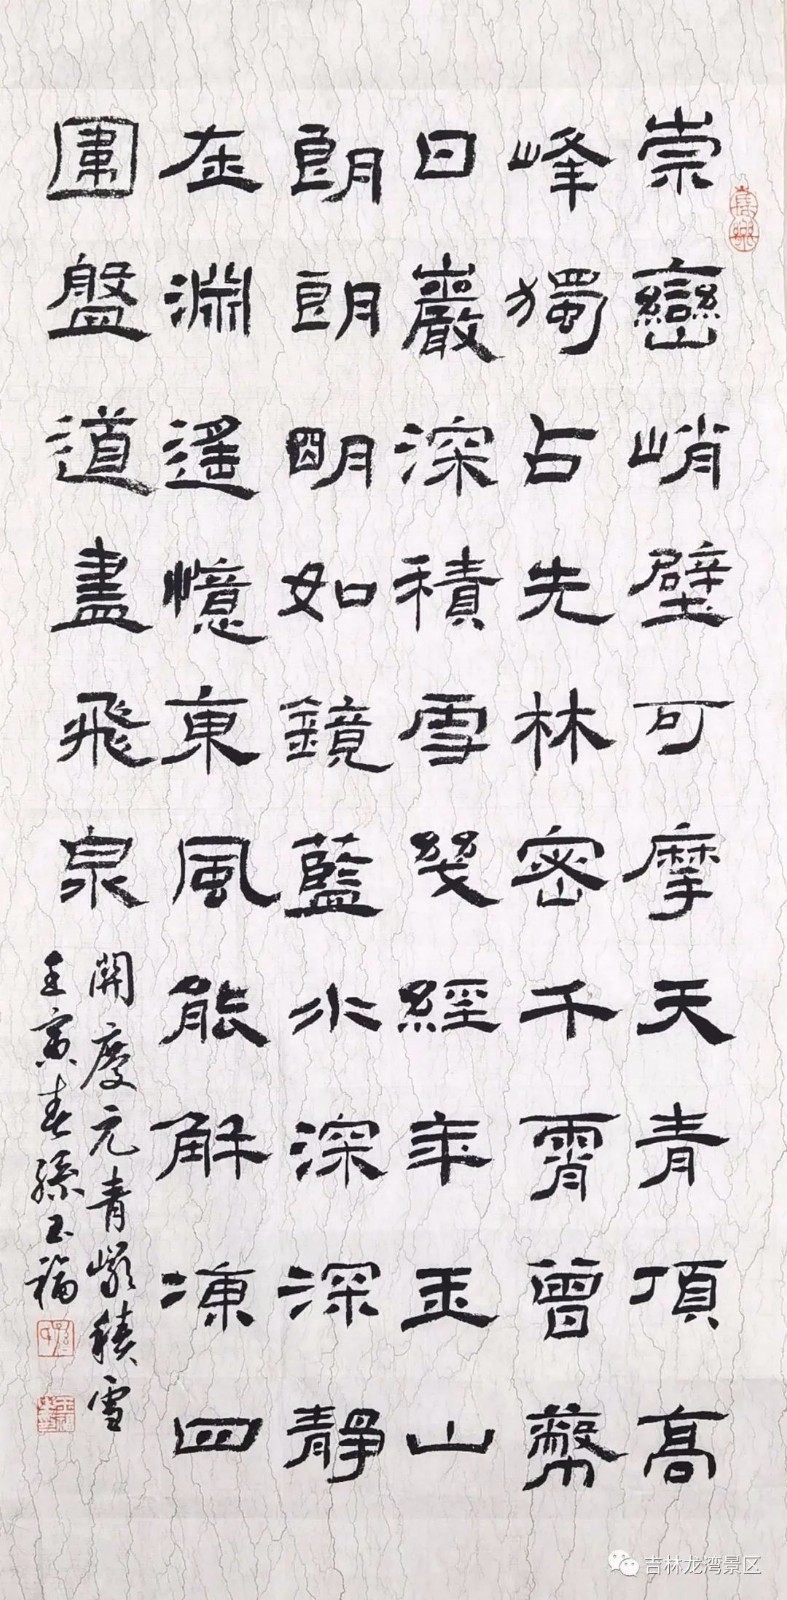 崇巒峭壁可摩天青頂高
峰獨占先林密千霄曾蔽
日巖深積雪幾經年玉山
朗朗明如鏡藍水深深靜
在淵遙憶東風能解凍四
圍盤道盡飛泉
開慶元青巖積雪
壬寅春孫玉福
吉林龙湾景区